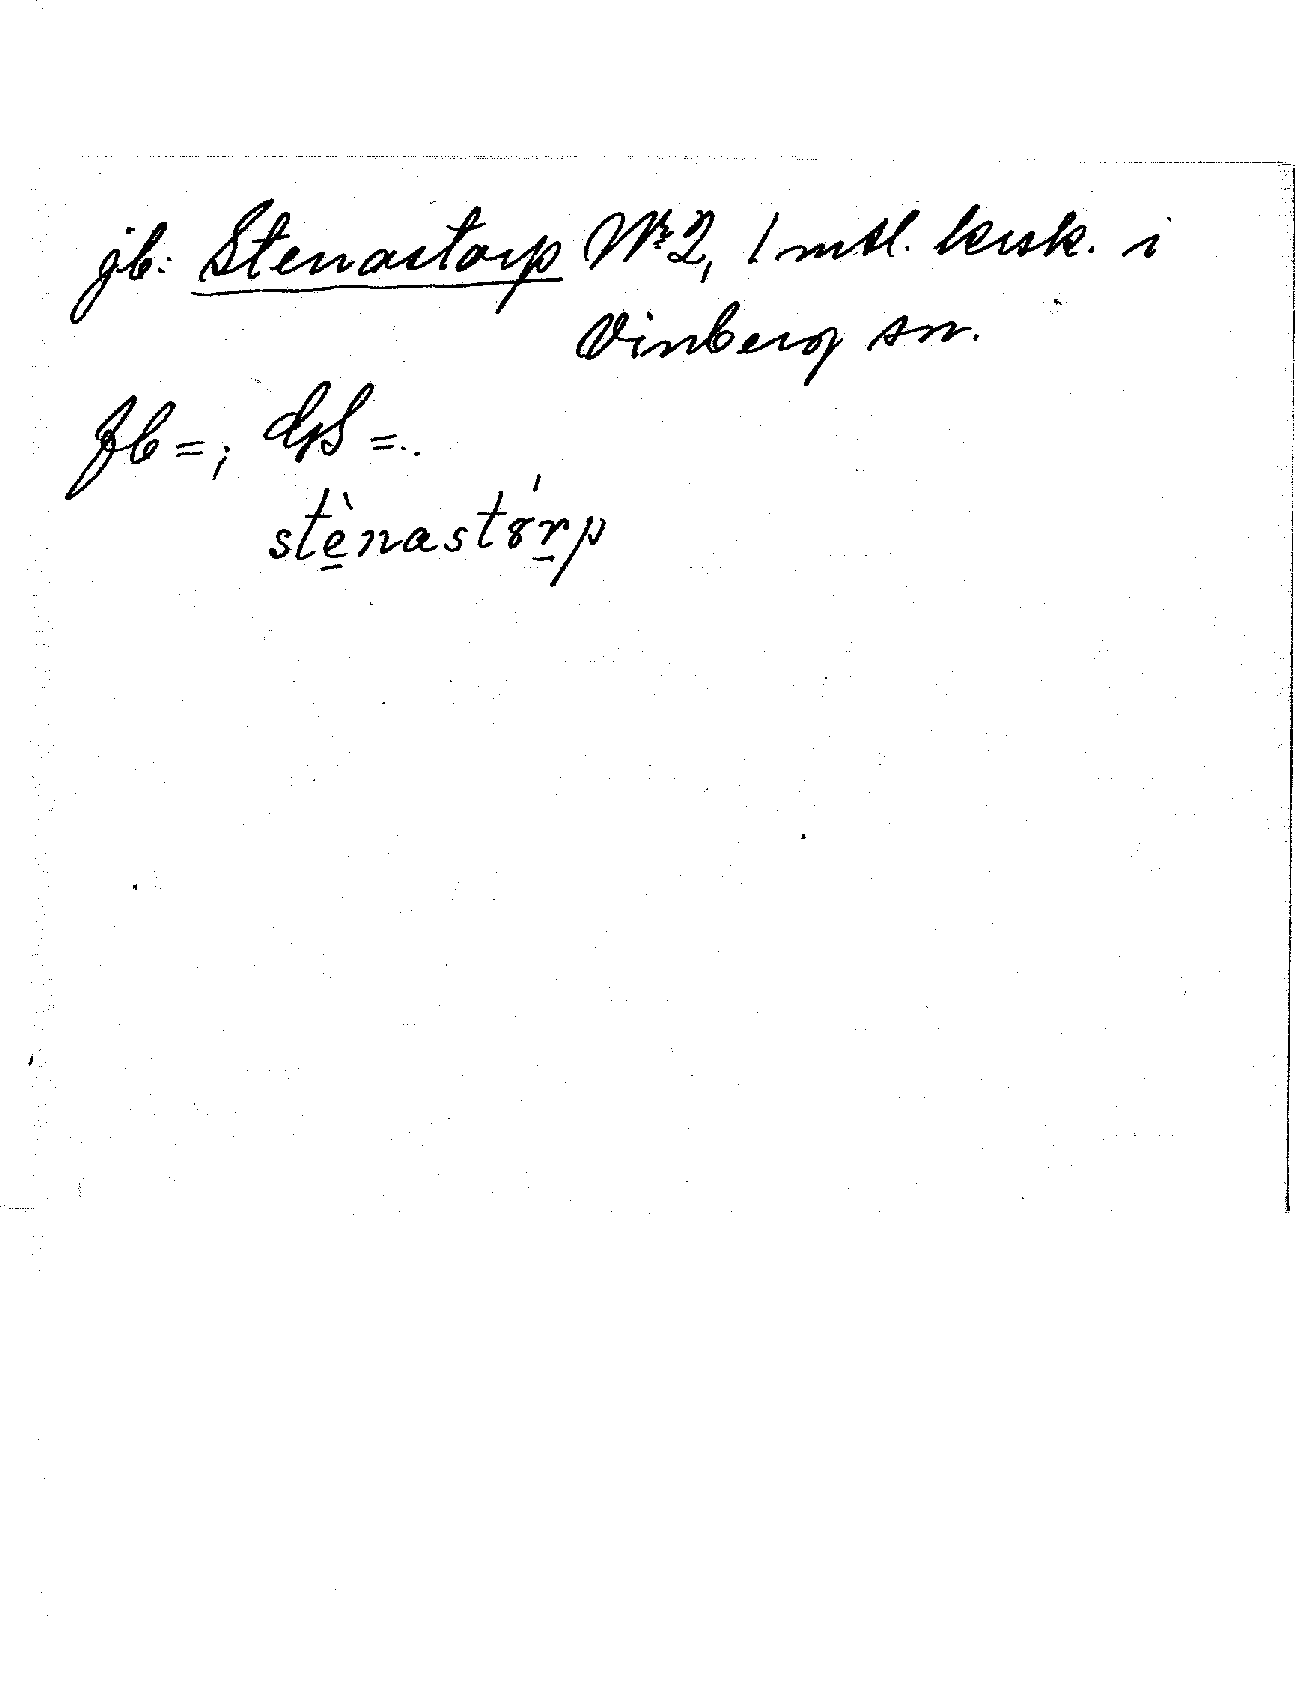 jb: Stenastorp № 2, 1 mtl. krsk. i
Vinberg sn.
fb =; GS =.
stènastórp